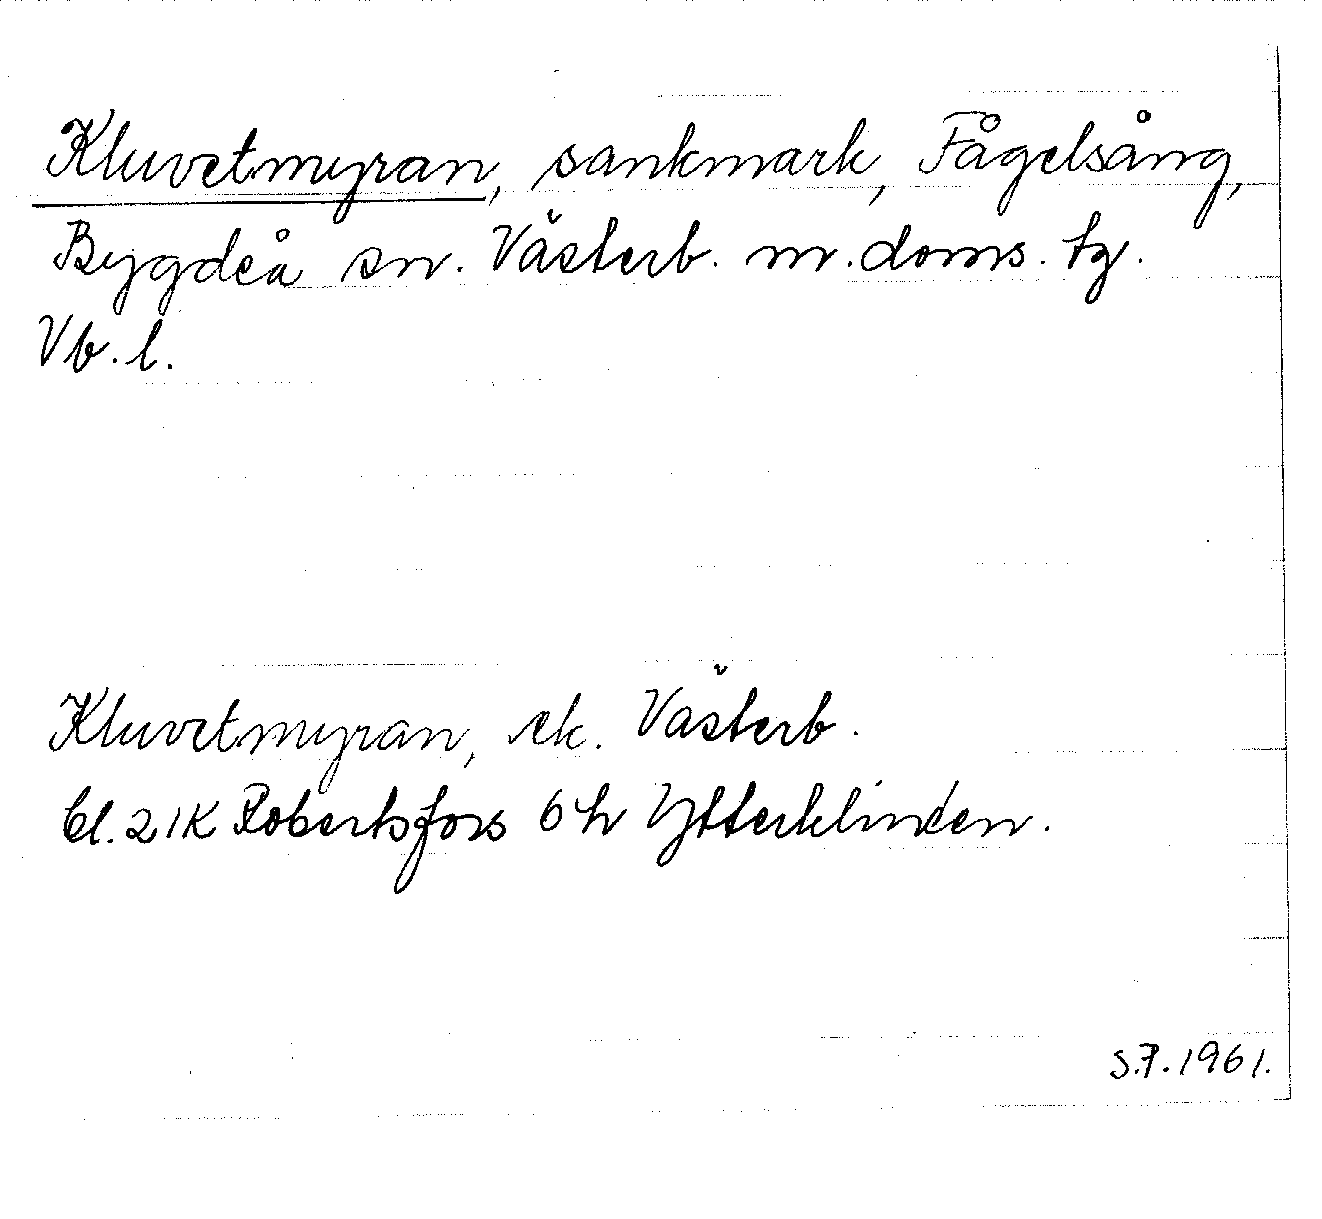 Kluvetmyran, sankmark, Fågelsång,
Bygdeå sn. Västerb. m. doms. tg.
Vb. l.
Kluvetmyran, ek. Västerb.
bl. 21K Robertsfors 6h Ytterklinten.
S.P. 1961.